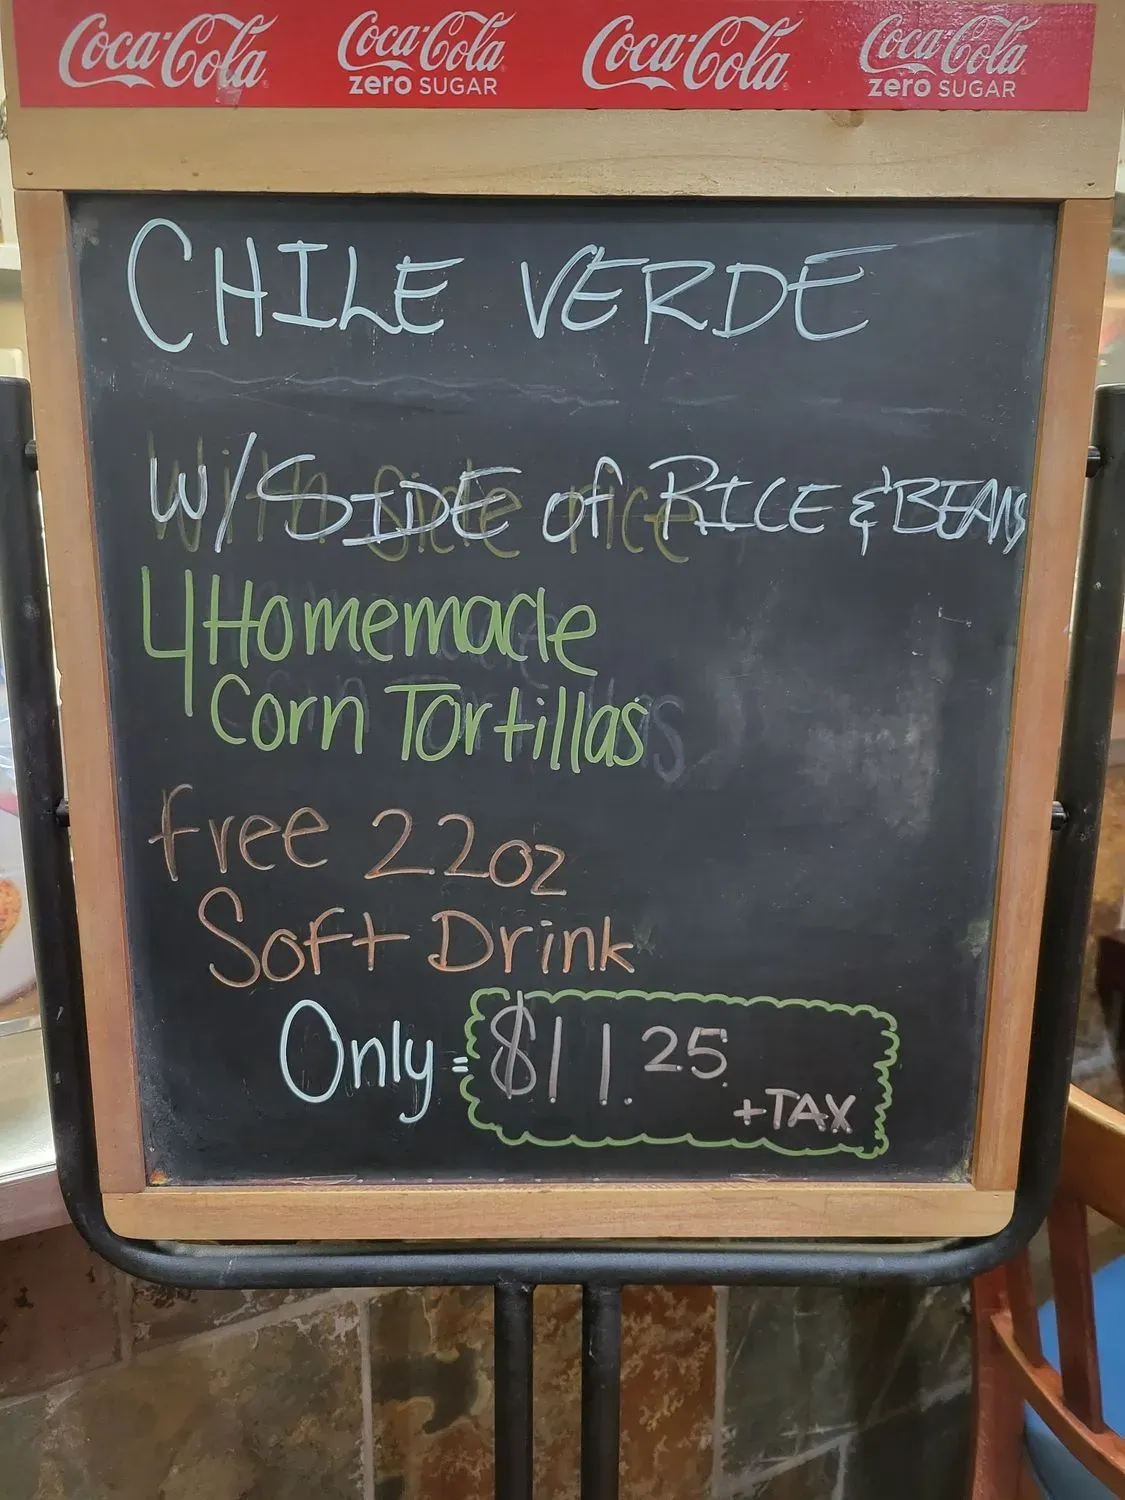 Coca-Cola Coca-Cola zero SUGAR Coca-Cola Coca-Cola zero SUGAR
CHILE VERDE
W/SIDE of RICE & BEANS
4 Homemade
Corn Tortillas
free 22oz
Soft Drink
Only = $11.25
+TAX